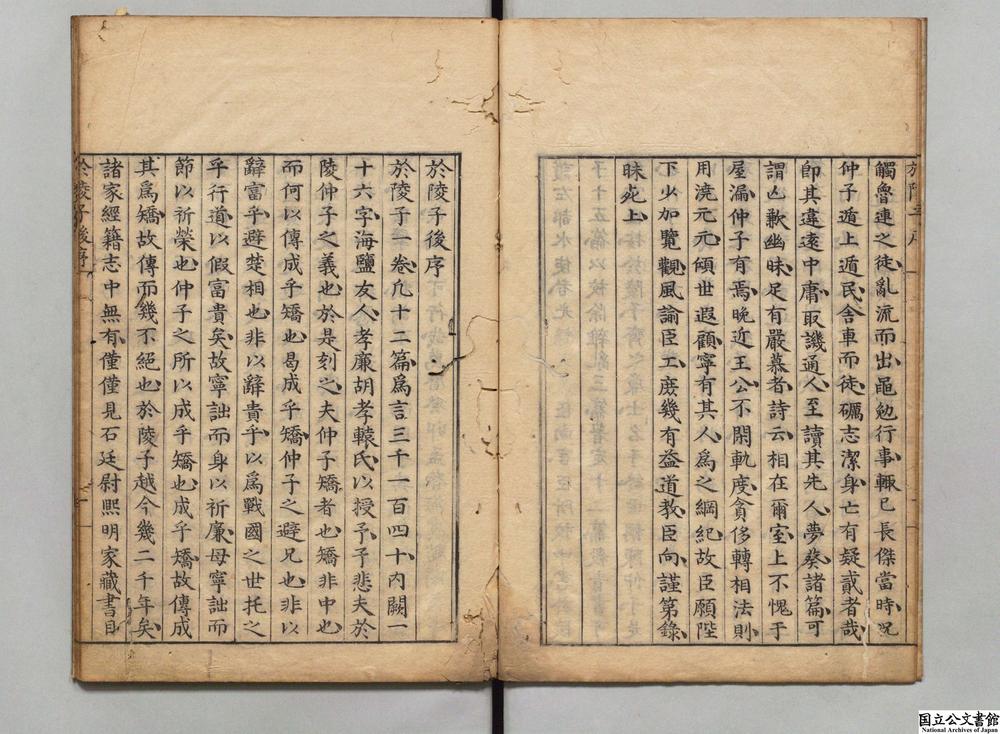 觸魯連之徒亂流而出黽勉行事輒已長傑當時況
仲子遁上遁民舍車而徒礪志潔身亡有疑貳者哉
卽其違遠中庸取譏通人至讀其先人夢癸諸篇可
謂亾歉幽昧足有嚴慕者詩云相在爾室上不愧于
屋漏仲子有焉晚近王公不閑軌度貪侈轉相法則
用澆元元傾世遐顧寧有其人爲之綱紀故臣願陛
下少加覽觀風諭臣工庶幾有益道教臣向謹第錄
昧死上
於陵子後序
於陵子一卷凡十二篇爲言三千一百四十內闕一
十六字海鹽友人孝廉胡孝轅氏以授予予悲夫於
陵仲子之義也於是刻之夫仲子矯者也矯非中也
而何以傳成乎矯也曷成乎矯仲子之避兄也非以
辭富乎避楚相也非以辭貴乎以爲戰國之世托之
乎行道以假富貴矣故寧詘而身以祈廉毋寧詘而
節以祈榮也仲子之所以成乎矯也成乎矯故傳成
其爲矯故傳而幾不絕也於陵子越今幾二千年矣
諸家經籍志中無有僅僅見石廷尉熙明家藏書目
於陵子後序
国立公文書館
National Archives of Japan